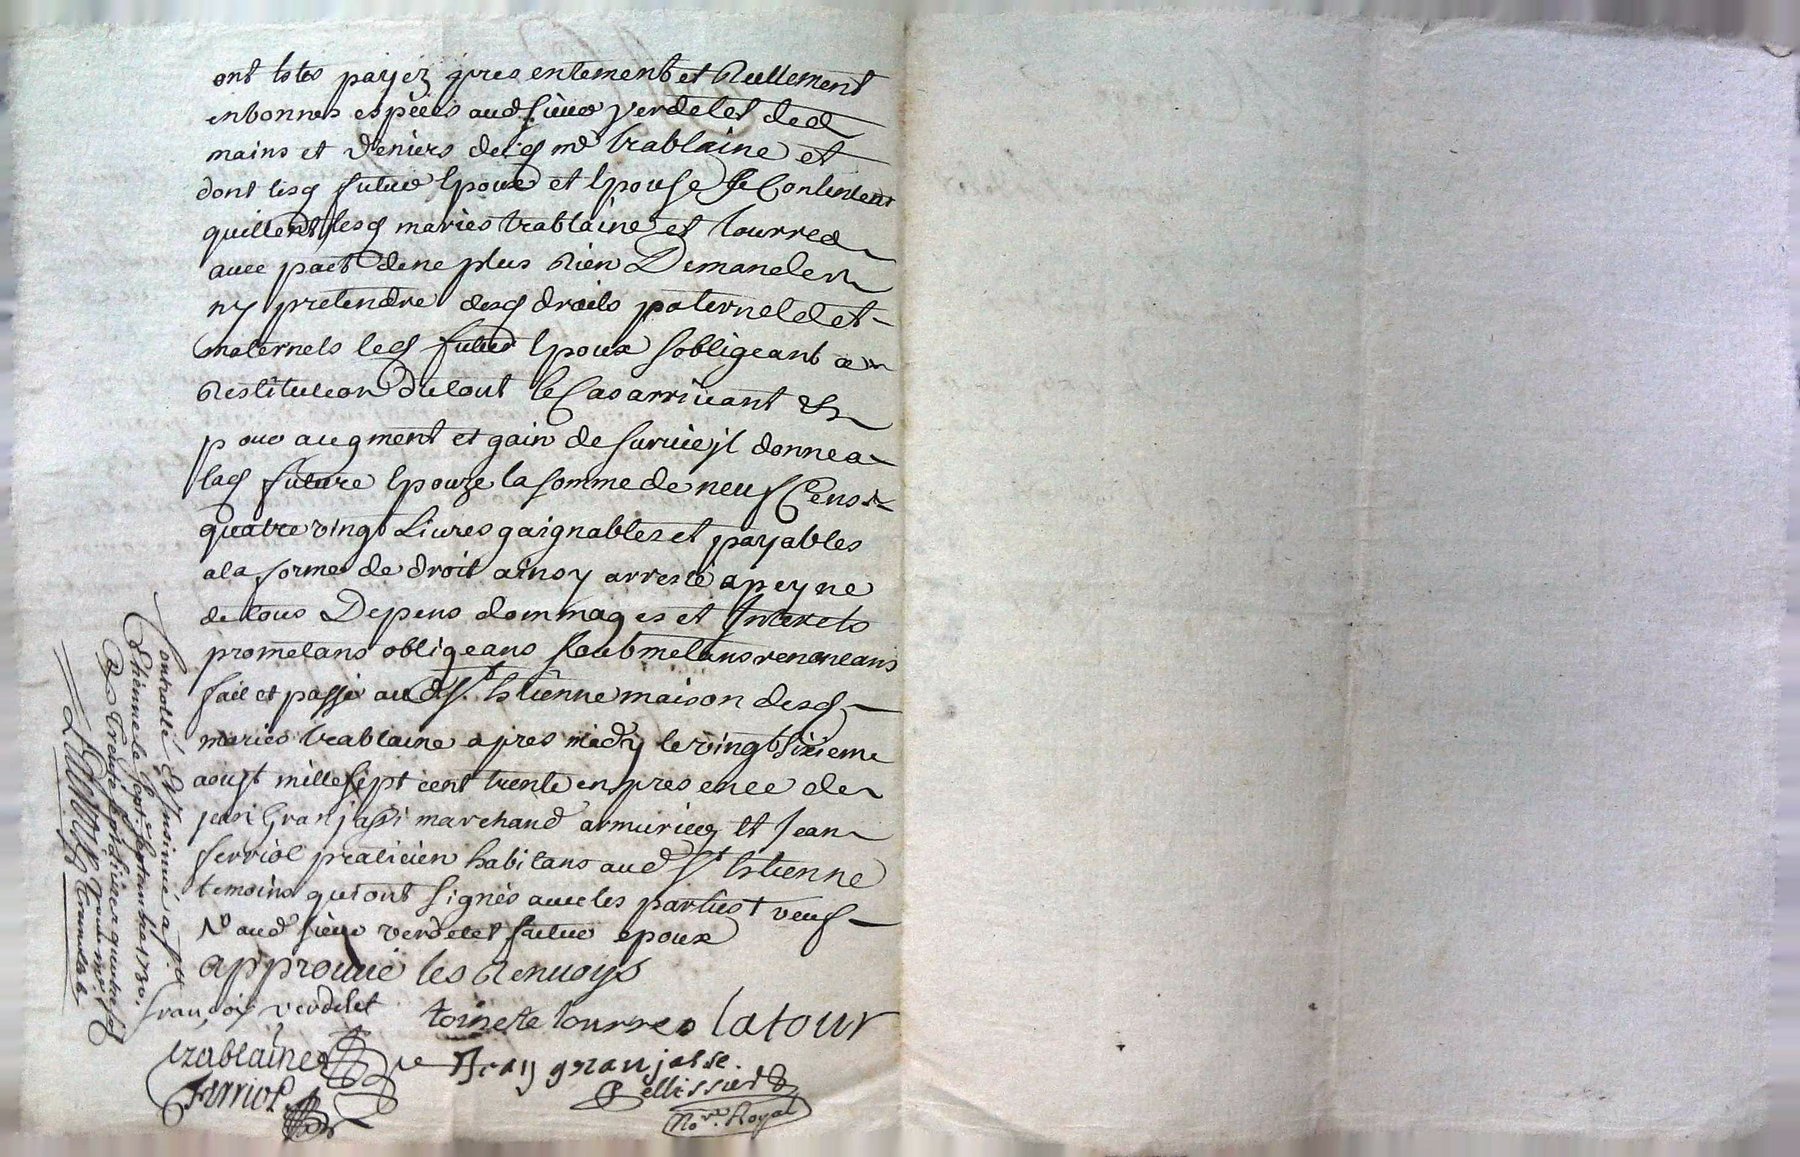 ont estes payez presentement et Reellement
en bonnes especes aud. sieur verdelet des
mains et deniers desq md trablaine et
dont lesq futur Epoux et Epouse se Contentent
quittent lesq mariés trablaine et tourres
avec pact de ne plus Rien Demander
ny pretendre desq droits paternels et
maternels leq futur Epoux sobligeant a
Restitution du tout le Cas arrivant &
pour augment et gain de survie jl donne a
laq future Epouze la somme de neuf Cens
quatre vingt Livres gaignables et payables
a la forme de droit ainsy arresté a peyne
de tous Depens dommages et Interets
prometans obligeans soubmetans renonceans
fait et passé aud St. Estienne maison desq
mariés trablaine apres midy le vingt sixieme
aoust mille sept cent trente en presence de
jean Granjasse marchand armurier et Jean
ferriol praticien habitans aud St Estienne
temoins qui ont signés avec les parties + veuf
N aud sieur verdelet futur epoux
approuvé les Renvoys
françois verdelet
toinete tourres latour
trablaine
Jean granjasse
ferriol
Pellissier
No.re Royal
Controllé & Insinué a St
Ethienne le sept. septembre 1730.